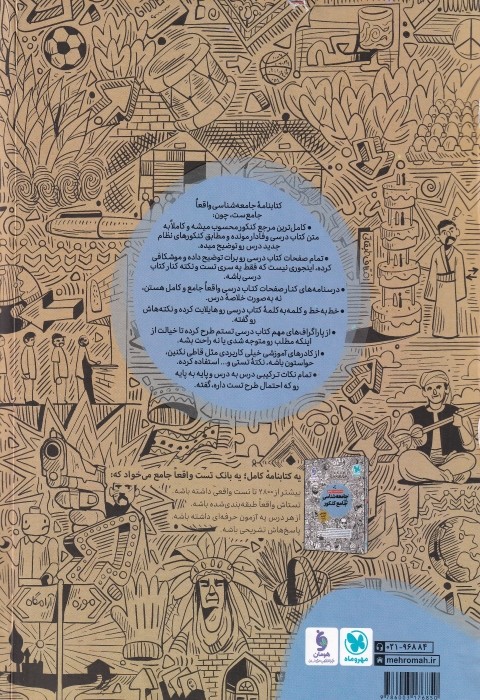 کتابنامهٔ جامعه‌شناسی واقعاً
جامع‌ست، چون:
• کامل‌ترین مرجع کنکور محسوب میشه و کاملاً به
متن کتاب درسی وفادار مونده و مطابق کنکورهای نظام
جدید درس رو توضیح میده.
• تمام صفحات کتاب درسی رو برات توضیح داده و موشکافی
کرده، اینجوری نیست که فقط یه سری تست و نکته کنار کتاب
درسی باشه.
• درسنامه‌های کنار صفحات کتاب درسی واقعاً جامع و کامل هستن،
نه به‌صورت خلاصهٔ درس.
• خط‌به‌خط و کلمه‌به‌کلمهٔ کتاب درسی رو هایلایت کرده و نکته‌هاش
رو گفته.
• از پاراگراف‌های مهم کتاب درسی تستم طرح کرده تا خیالت از
اینکه مطلب رو متوجه شدی یا نه راحت بشه.
• از کادرهای آموزشی خیلی کاربردی مثل قاطی نکنین،
حواستون باشه، نکتهٔ تستی و... استفاده کرده.
• تمام نکات ترکیبی درس به درس و پایه به پایه
رو که احتمال طرح تست داره، گفته.
یه کتابنامهٔ کامل؛ یه بانک تست واقعاً جامع می‌خواد که:
بیشتر از ۲۸۰۰ تا تست واقعی داشته باشه.
تستاش واقعاً طبقه‌بندی‌شده باشه.
از هر درس یه آزمون حرفه‌ای داشته باشه.
پاسخ‌هاش تشریحی باشه.
جامعه‌شناسی
جامع کنکور
موزه
آرامگاه
هومان
مهروماه
۰۲۱-۹۶۸۸۴
mehromah.ir